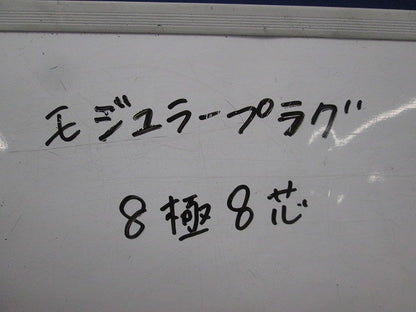 モジュラープラグ
8極8芯